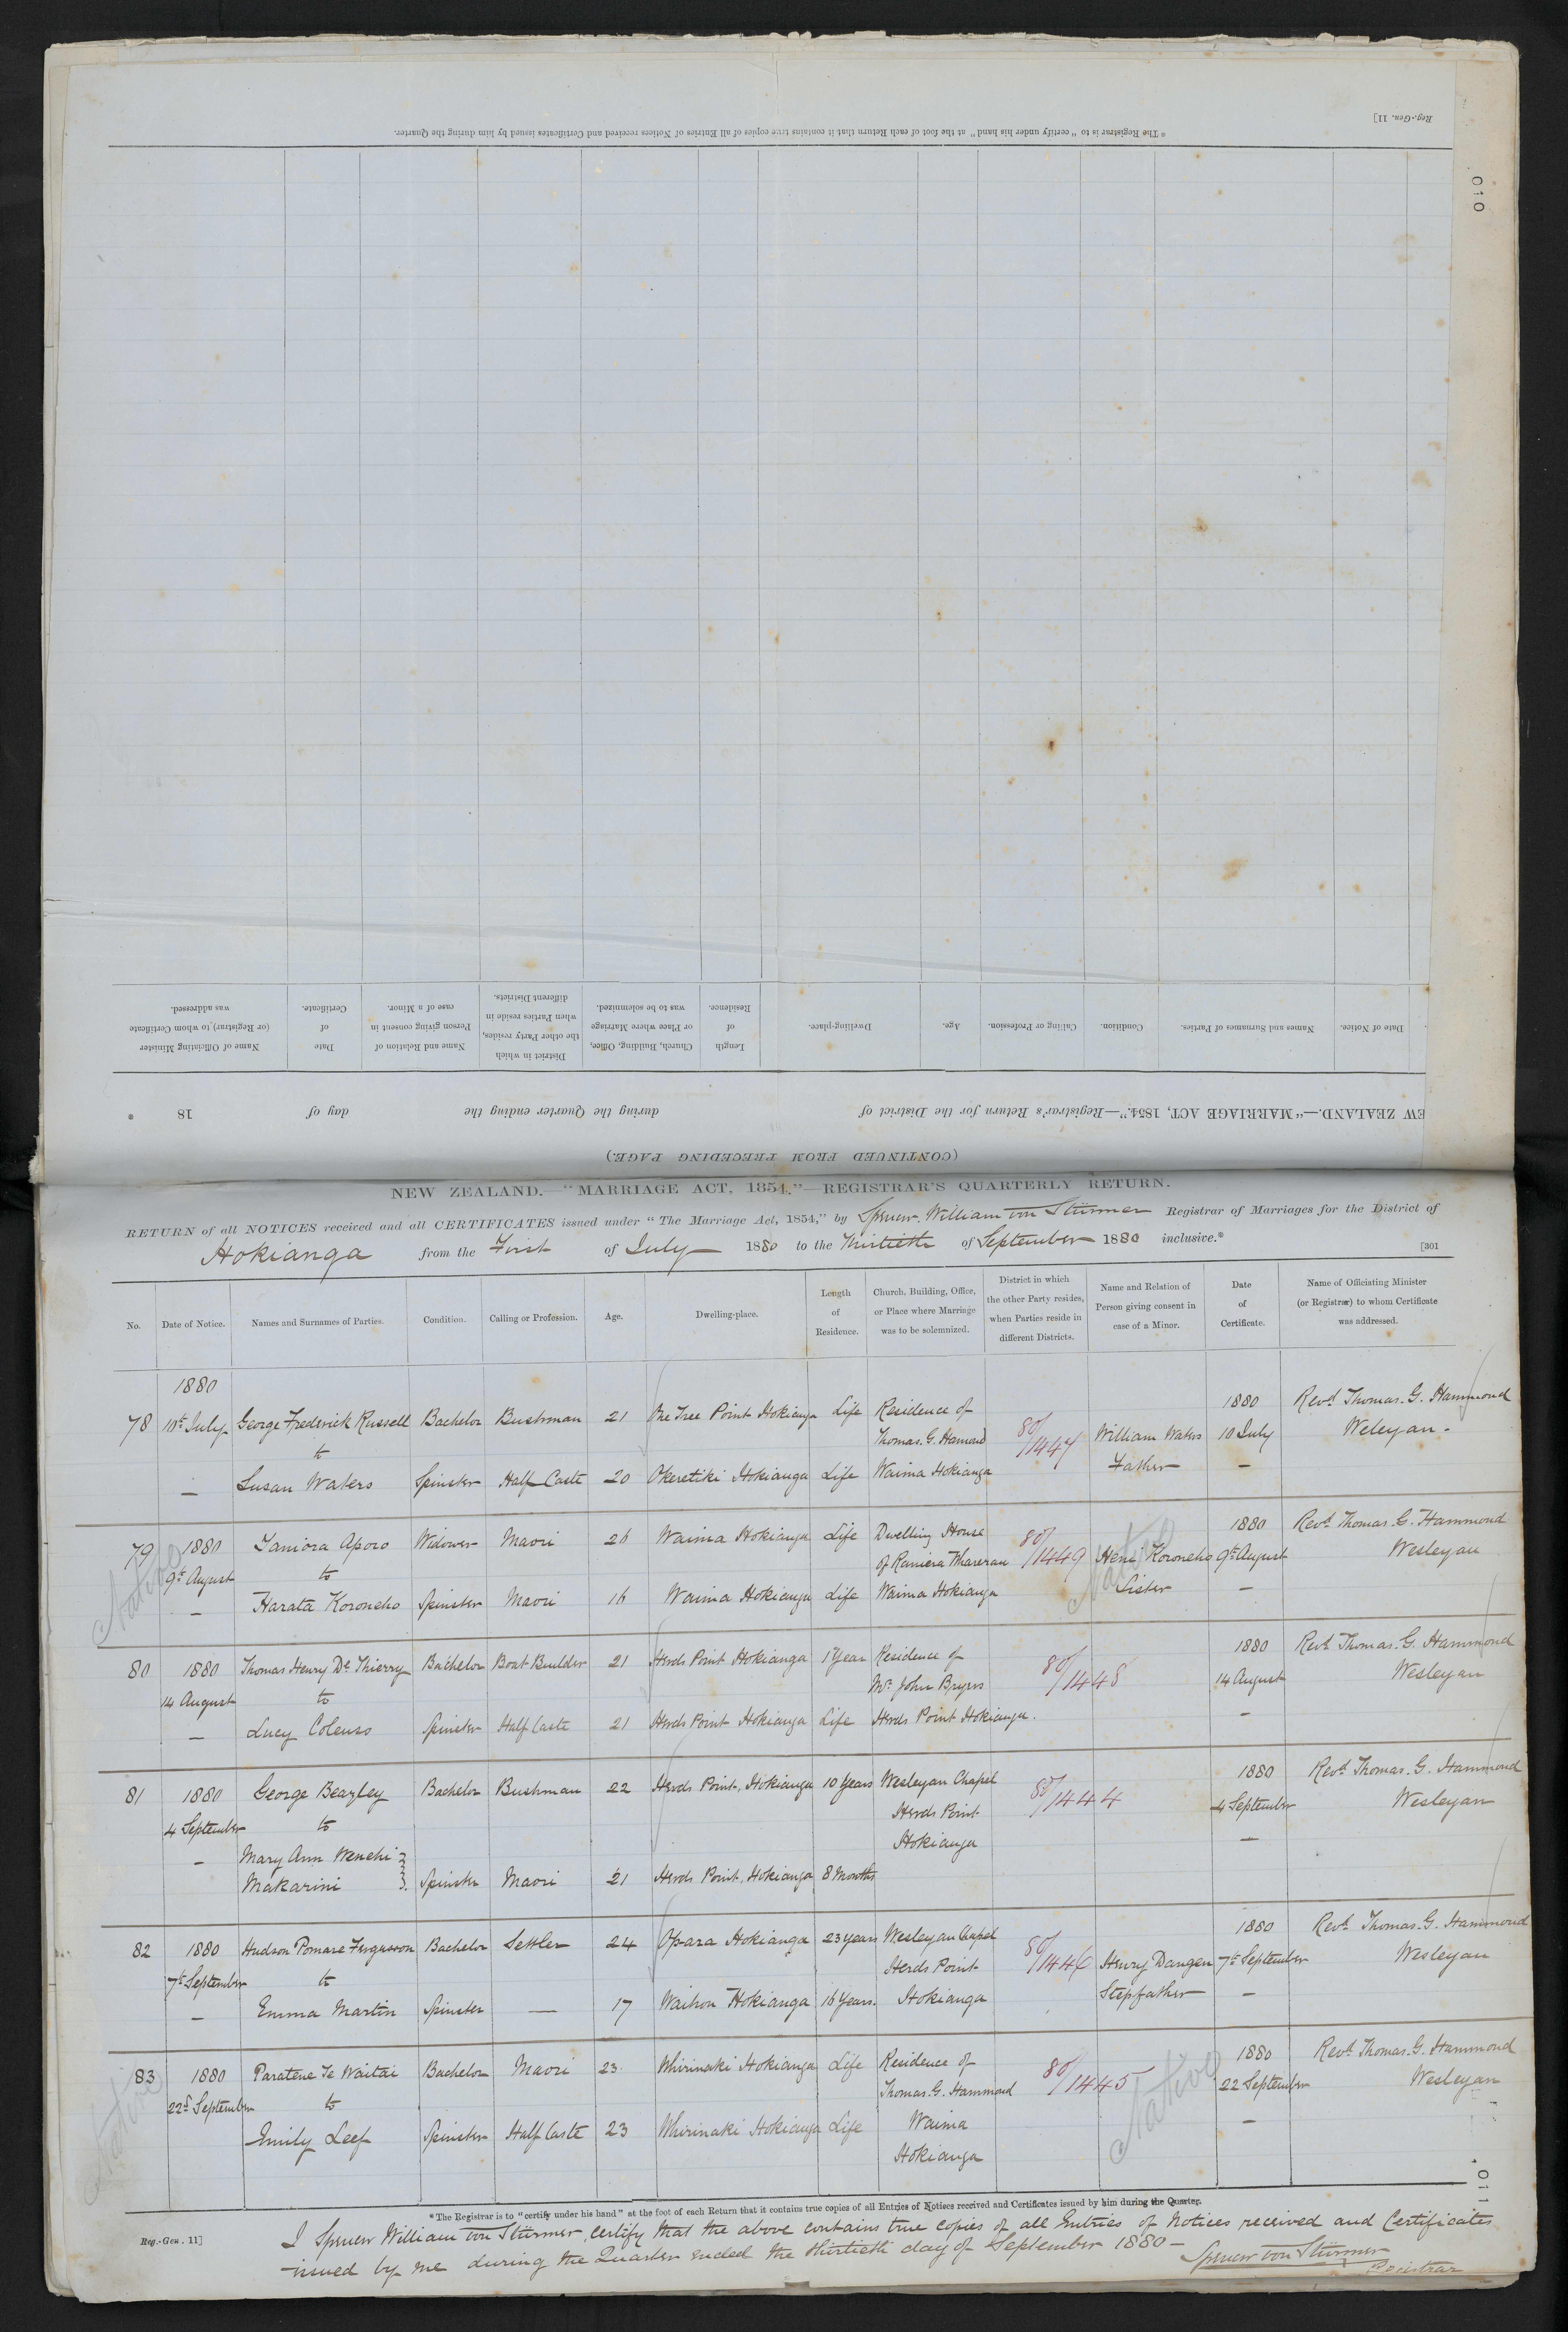 * The Registrar is to "certify under his hand" at the foot of each Return that it contains true copies of all Entries of Notices received and Certificates issued by him during the Quarter.
Reg.-Gen. 11]
010
Date of Notice.
Names and Surnames of Parties.
Condition.
Calling or Profession.
Age.
Dwelling-place.
Length of Residence.
Church, Building, Office, or Place where Marriage was to be solemnized.
District in which the other Party resides, when Parties reside in different Districts.
Name and Relation of Person giving consent in case of a Minor.
Date of Certificate.
Name of Officiating Minister (or Registrar) to whom Certificate was addressed.
EW ZEALAND.—"MARRIAGE ACT, 1854."—Registrar's Return for the District of during the Quarter ending the day of 18 *
(CONTINUED FROM PRECEDING PAGE.)
NEW ZEALAND.—"MARRIAGE ACT, 1854."—REGISTRAR'S QUARTERLY RETURN.
RETURN of all NOTICES received and all CERTIFICATES issued under "The Marriage Act, 1854," by Spencer William von Stürmer Registrar of Marriages for the District of
Hokianga from the First of July 1880 to the Thirtieth of September 1880 inclusive.*
[301
No.
Date of Notice.
Names and Surnames of Parties.
Condition.
Calling or Profession.
Age.
Dwelling-place.
Length of Residence.
Church, Building, Office, or Place where Marriage was to be solemnized.
District in which the other Party resides, when Parties reside in different Districts.
Name and Relation of Person giving consent in case of a Minor.
Date of Certificate.
Name of Officiating Minister (or Registrar) to whom Certificate was addressed.
1880
1880
78 10th July George Frederick Russell Bachelor Bushman 21 One Tree Point Hokianga Life Residence of 80/1447 William Waters 10 July Revd Thomas. G. Hammond
to Thomas. G. Hamond Father Weleyan -
— Susan Waters Spinster Half Caste 20 Okeretiki Hokianga Life Waima Hokianga —
Native
79 1880 Taniora Aporo Widower Maori 26 Waima Hokianga Life Dwelling House 80/1449 1880 Revd Thomas. G. Hammond
9th August to of Raniera Wharerau Heni Koroneho 9th August Wesleyan
— Harata Koroneho Spinster Maori 16 Waima Hokianga Life Waima Hokianga Sister —
Native
80 1880 Thomas Henry De Thierry Bachelor Boat Builder 21 Herds Point Hokianga 1 Year Residence of 80/1448 1880 Revd Thomas. G. Hammond
14 August to Mr. John Bryers 14 August Wesleyan
— Lucy Colenso Spinster Half Caste 21 Herds Point Hokianga Life Herds Point Hokianga. —
81 1880 George Beazley Bachelor Bushman 22 Herds Point, Hokianga 10 Years Wesleyan Chapel 80/1444 1880 Revd Thomas. G. Hammond
4 September to Herds Point 4 September Wesleyan
— Mary Ann Wenehi Hokianga —
Makarini Spinster Maori 21 Herds Point, Hokianga 8 Months
82 1880 Hudson Pomare Fergusson Bachelor Settler 24 Opara Hokianga 23 years Wesleyan Chapel 80/1446 1880 Revd Thomas. G. Hammond
7th September to Herds Point Henry Dangen 7th September Wesleyan
— Emma Martin Spinster — 17 Waihou Hokianga 16 Years. Hokianga Stepfather —
Native
83 1880 Paratene Te Waitai Bachelor Maori 23 Whirinaki Hokianga Life Residence of 80/1445 1880 Revd Thomas. G. Hammond
22d September to Thomas. G. Hammond 22 September Wesleyan
— Emily Leef Spinster Half Caste 23 Whirinaki Hokianga Life Waima —
Hokianga
Native
011
* The Registrar is to "certify under his hand" at the foot of each Return that it contains true copies of all Entries of Notices received and Certificates issued by him during the Quarter.
Reg.-Gen. 11]
I Spencer William von Stürmer, certify that the above contains true copies of all Entries of Notices received and Certificates
issued by me during the Quarter ended the thirtieth day of September 1880 -
Spencer von Stürmer
Registrar